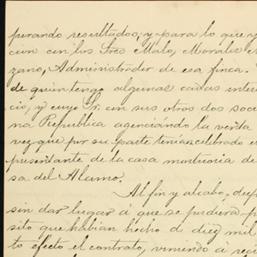 perando resultados, y para lo que y
cion con los Sres Malo, Morales
zano, Administrador de esa finca.
de quien tengo algunas cartas inter
cio, y cuyo Sr. con sus otros dos soc
na Republica agenciando la venta
vez que por su parte tenian celebrado
presentante de la casa mortuoria de
sa del Alamo.
Al fin y al cabo, desp
sin dar lugar á que se perdiera
sito que habian hecho de diez mil
to efecto el contrato, viniendo á